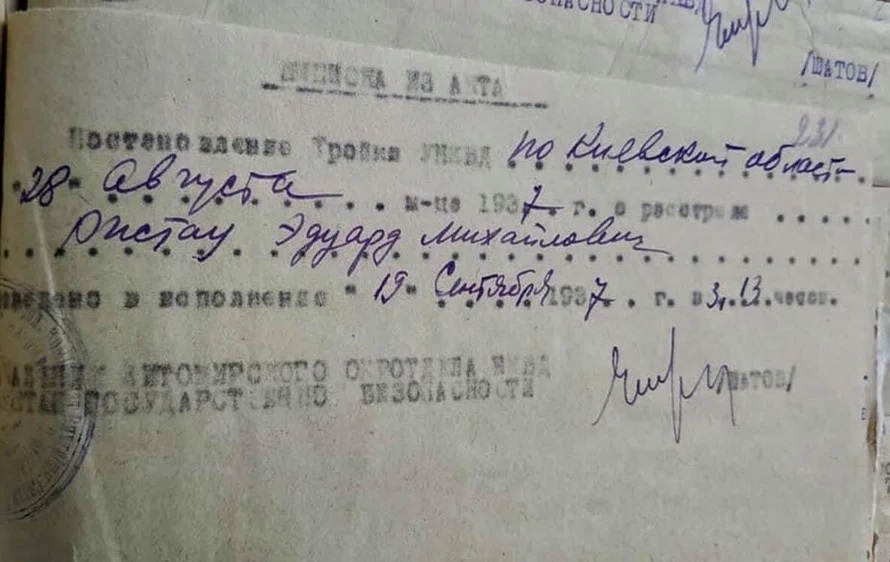 БЕЗОПАСНОСТИ
/ШАТОВ/
ВЫПИСКА ИЗ АКТА
231
Постановление Тройки УНКВД по Киевской области
"28" Августа м-це 1937 г. о расстреле
Эдуард Михайлович
приведено в исполнение "19" Сентября 1937 г. в 3 ч. 13 часов.
НАЧАЛЬНИК ЖИТОМИРСКОГО ОКРОТДЕЛА НКВД
ГОСУДАРСТВЕННО БЕЗОПАСНОСТИ /ШАТОВ/